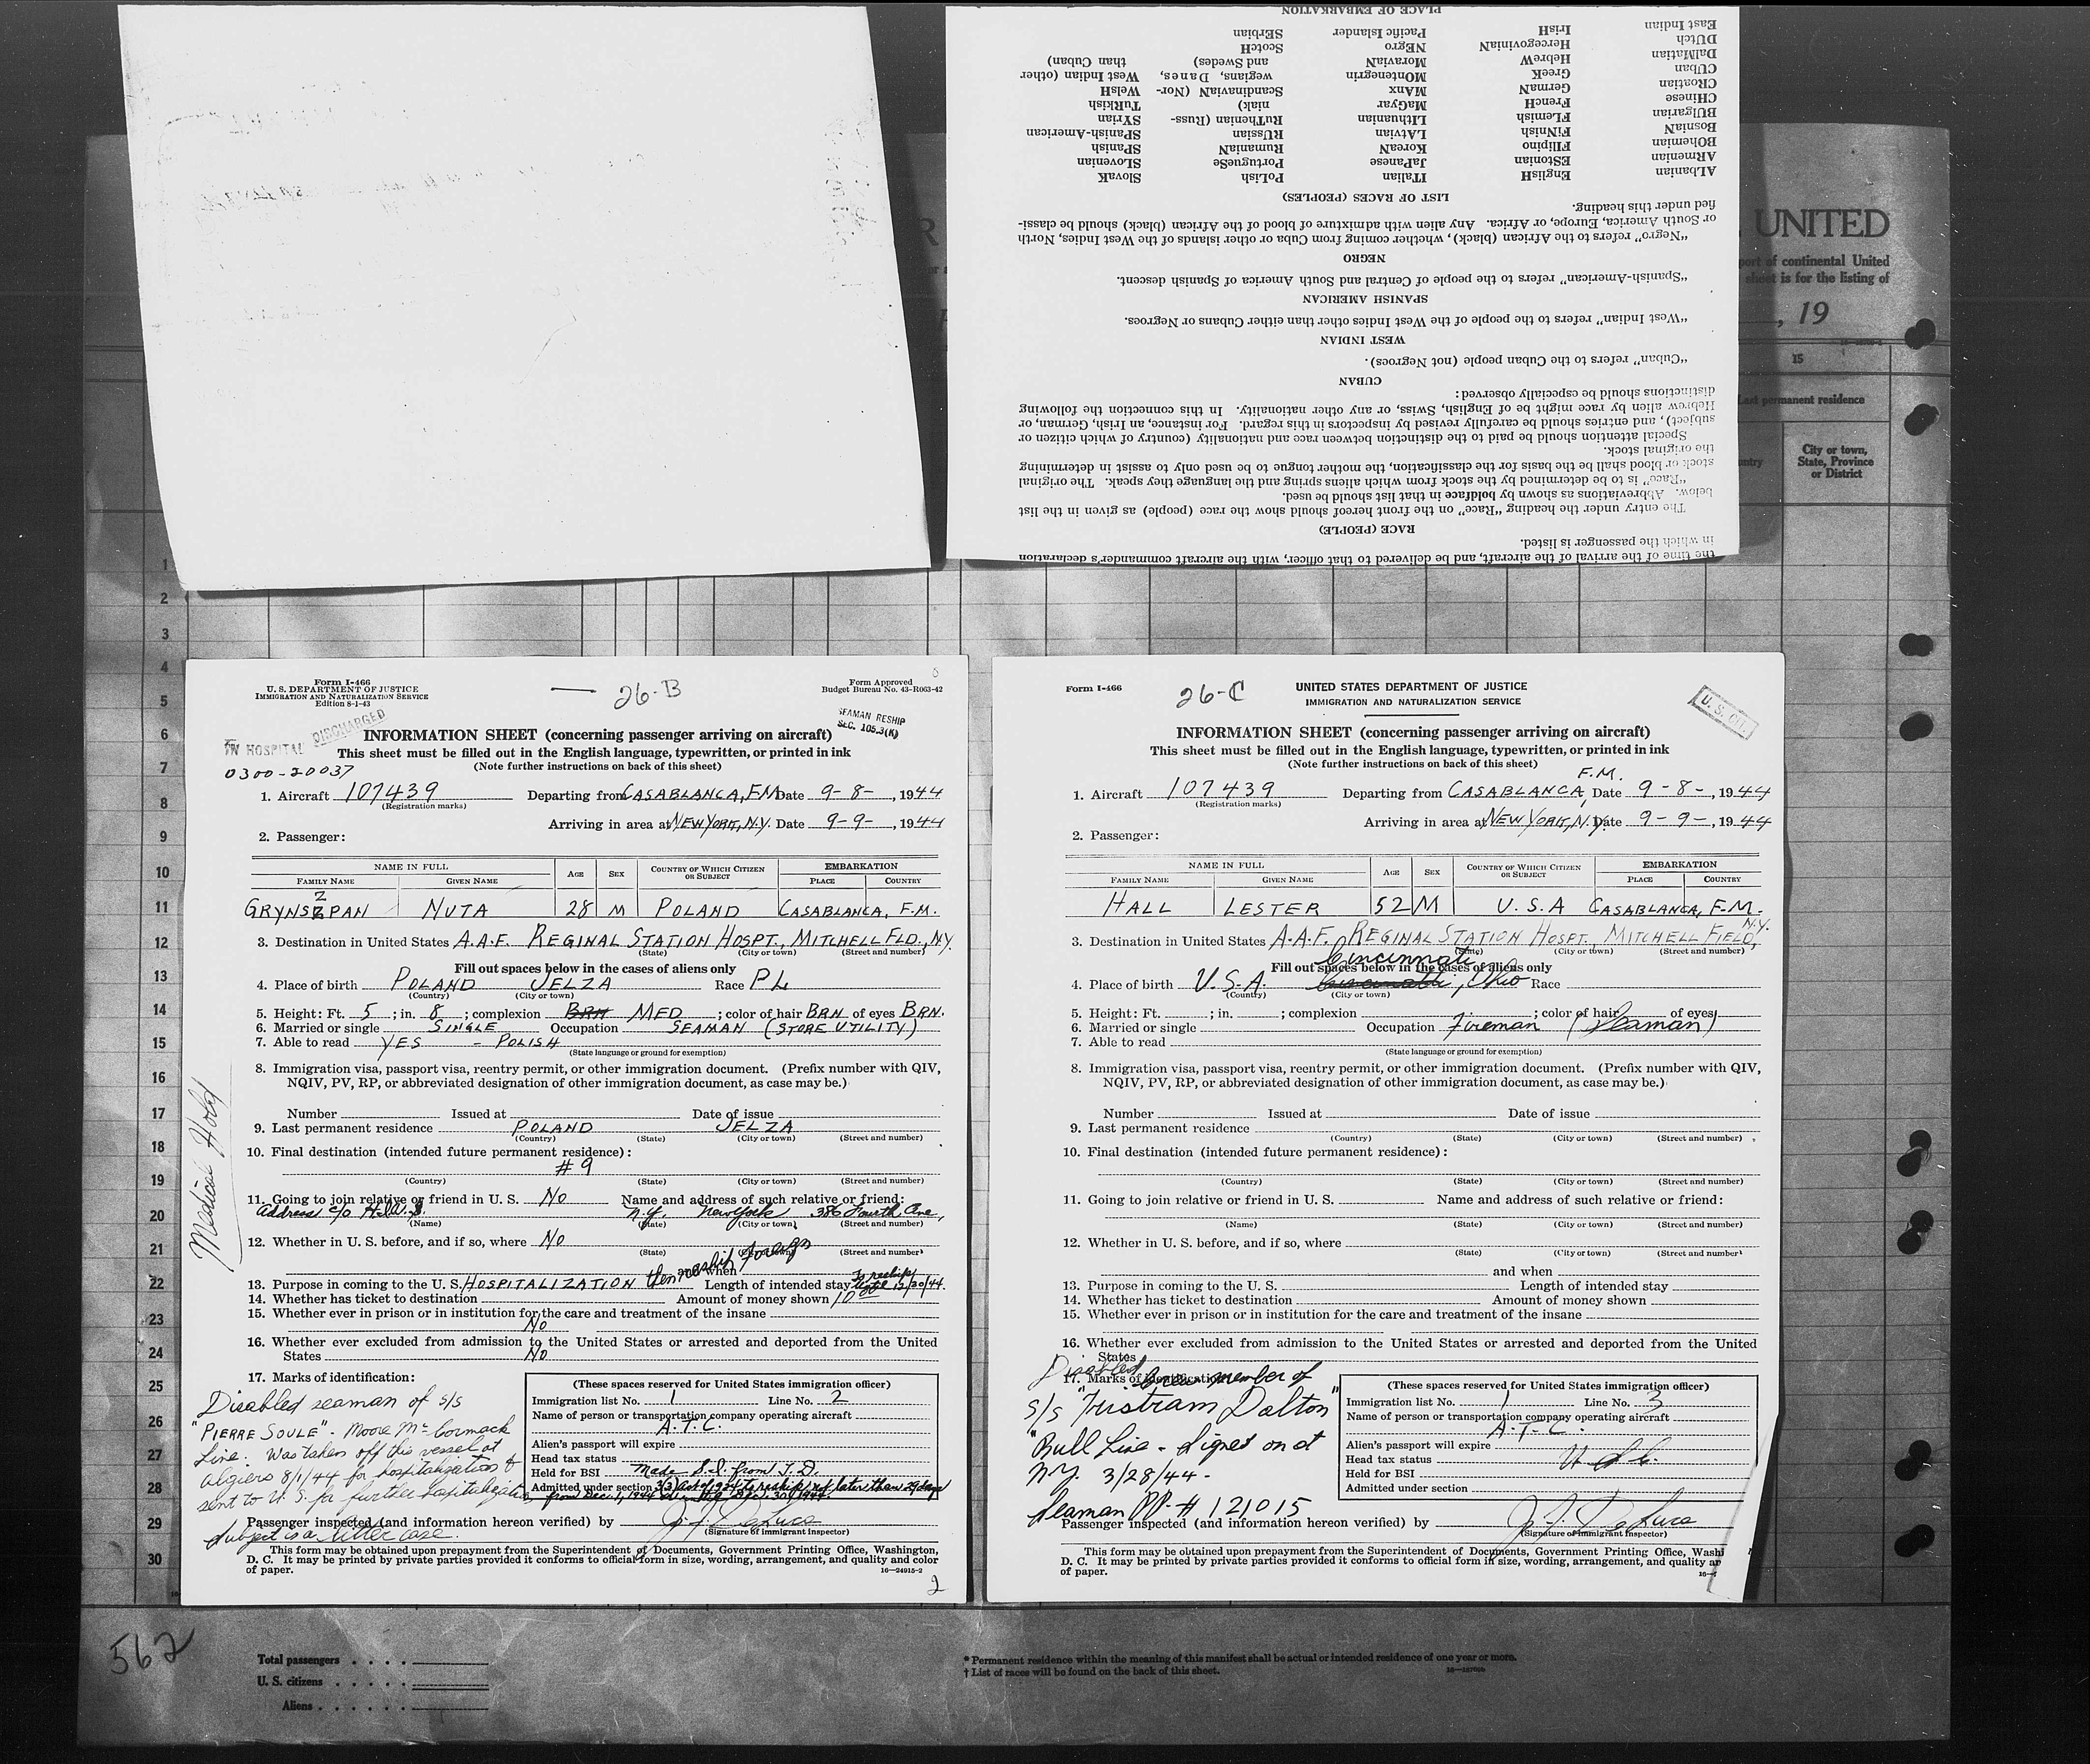 PLACE OF EMBARKATION
East Indian
DUtch
DalMatian
CUban
CRoatian
CHinese
BUlgarian
BosniaN
BOhemian
ARmenian
ALbanian
IrisH
HercegoviniaN
HebreW
GreeK
GermaN
FrencH
FLemish
FiNnish
FIlipino
EStonian
EnglisH
Pacific Islander
NEgro
MoraviaN
MOntenegrin
MAnx
MaGyar
LIthuanian
LAtvian
KoreaN
JaPanese
ITalian
SErbian
ScotcH
ScandinaviaN (Nor-
wegians, Danes,
and Swedes)
RuThenian (Russ-
niak)
RUssian
RumaniaN
PortugueSe
PoLish
West Indian (other
than Cuban)
WelsH
TuRkish
SYrian
SPanish-American
SPanish
SLovenian
SlovaK
LIST OF RACES (PEOPLES)
fied under this heading.
or South America, Europe, or Africa. Any alien with admixture of blood of the African (black) should be classi-
"Negro" refers to the African (black), whether coming from Cuba or other islands of the West Indies, North
NEGRO
"Spanish-American" refers to the people of Central and South America of Spanish descent.
SPANISH AMERICAN
"West Indian" refers to the people of the West Indies other than either Cubans or Negroes.
WEST INDIAN
"Cuban" refers to the Cuban people (not Negroes).
CUBAN
distinctions should be especially observed:
Hebrew alien by race might be of English, Swiss, or any other nationality. In this connection the following
subject), and entries should be carefully revised by inspectors in this regard. For instance, an Irish, German, or
Special attention should be paid to the distinction between race and nationality (country of which citizen or
the original stock.
stock or blood shall be the basis for the classification, the mother tongue to be used only to assist in determining
"Race" is to be determined by the stock from which aliens spring and the language they speak. The original
below. Abbreviations as shown by boldface in that list should be used.
The entry under the heading "Race" on the front hereof should show the race (people) as given in the list
RACE (PEOPLE)
in which the passenger is listed.
the time of the arrival of the aircraft, and be delivered to that officer, with the aircraft commander's declaration
UNITED
port of continental United
sheet is for the listing of
, 19
15
Last permanent residence
City or town,
State, Province
or District
1
2
3
4
5
6
7
8
9
10
11
12
13
14
15
16
17
18
19
20
21
22
23
24
25
26
27
28
29
30
Form I-466
U. S. DEPARTMENT OF JUSTICE
IMMIGRATION AND NATURALIZATION SERVICE
Edition 8-1-43
26-B
Form Approved
Budget Bureau No. 43-R063-42
DISCHARGED
IN HOSPITAL
SEAMAN RESHIP
SEC. 105.3(K)
INFORMATION SHEET (concerning passenger arriving on aircraft)
This sheet must be filled out in the English language, typewritten, or printed in ink
(Note further instructions on back of this sheet)
0300-20037
1. Aircraft 107439 Departing from CASABLANCA, F.M. Date 9-8-, 1944
(Registration marks)
Arriving in area at NEW YORK, N.Y. Date 9-9-, 1944
2. Passenger:
NAME IN FULL AGE SEX COUNTRY OF WHICH CITIZEN OR SUBJECT EMBARKATION
FAMILY NAME GIVEN NAME PLACE COUNTRY
GRYNSZPAN NUTA 28 M POLAND CASABLANCA, F.M.
3. Destination in United States A.A.F. REGINAL STATION HOSPT., MITCHELL FLD., NY
(State) (City or town) (Street and number)
Fill out spaces below in the cases of aliens only
4. Place of birth POLAND JELZA Race PL
(Country) (City or town)
5. Height: Ft. 5; in. 8; complexion BRN MED; color of hair BRN of eyes BRN.
6. Married or single SINGLE Occupation SEAMAN (STORE UTILITY)
7. Able to read YES - POLISH
(State language or ground for exemption)
8. Immigration visa, passport visa, reentry permit, or other immigration document. (Prefix number with QIV,
NQIV, PV, RP, or abbreviated designation of other immigration document, as case may be.)
Number Issued at Date of issue
9. Last permanent residence POLAND JELZA
(Country) (State) (City or town) (Street and number)
10. Final destination (intended future permanent residence):
#9
(Country) (State) (City or town) (Street and number)
11. Going to join relative or friend in U. S. No Name and address of such relative or friend:
Address c/o H.I.A.S. N.Y. New York 386 Fourth Ave,
(Name) (State) (City or town) (Street and number)
12. Whether in U. S. before, and if so, where No
(State) (City or town) (Street and number)
and when
13. Purpose in coming to the U. S. HOSPITALIZATION then reship foreign Length of intended stay To reship until 12/30/44.
14. Whether has ticket to destination Amount of money shown 10 00
15. Whether ever in prison or in institution for the care and treatment of the insane
No
16. Whether ever excluded from admission to the United States or arrested and deported from the United
States No
17. Marks of identification:
Disabled seaman of S/S
"PIERRE SOULE" - Moore McCormack
Line. Was taken off this vessel at
Algiers 8/1/44 for hospitalization &
sent to U.S. for further hospitalization
Subject is a litter case.
Medical Hold
(These spaces reserved for United States immigration officer)
Immigration list No. 1 Line No. 2
Name of person or transportation company operating aircraft
A.T.C.
Alien's passport will expire
Head tax status
Held for BSI Made S.I. from T.D.
Admitted under section 3(5) act of 1924 to reship not later than 29 days
from Dec. 1, 1944 Dec. 30, 1944.
Passenger inspected (and information hereon verified) by J. J. DeLuca
(Signature of immigrant inspector)
This form may be obtained upon prepayment from the Superintendent of Documents, Government Printing Office, Washington,
D. C. It may be printed by private parties provided it conforms to official form in size, wording, arrangement, and quality and color
of paper.
16—24915-2
2
Form I-466
26-C
UNITED STATES DEPARTMENT OF JUSTICE
IMMIGRATION AND NATURALIZATION SERVICE
U. S. CIT.
INFORMATION SHEET (concerning passenger arriving on aircraft)
This sheet must be filled out in the English language, typewritten, or printed in ink
(Note further instructions on back of this sheet)
F.M.
1. Aircraft 107439 Departing from CASABLANCA, Date 9-8-, 1944
(Registration marks)
Arriving in area at NEW YORK, N.Y. Date 9-9-, 1944
2. Passenger:
NAME IN FULL AGE SEX COUNTRY OF WHICH CITIZEN OR SUBJECT EMBARKATION
FAMILY NAME GIVEN NAME PLACE COUNTRY
HALL LESTER 52 M U.S.A CASABLANCA, F.M.
3. Destination in United States A.A.F. REGINAL STATION HOSPT., MITCHELL FIELD, N.Y.
(State) (City or town) (Street and number)
Fill out spaces below in the cases of aliens only
4. Place of birth U.S.A. Cincinnati, Ohio Race
(Country) (City or town)
5. Height: Ft. ; in. ; complexion ; color of hair of eyes
6. Married or single Occupation Fireman (Seaman)
7. Able to read
(State language or ground for exemption)
8. Immigration visa, passport visa, reentry permit, or other immigration document. (Prefix number with QIV,
NQIV, PV, RP, or abbreviated designation of other immigration document, as case may be.)
Number Issued at Date of issue
9. Last permanent residence
(Country) (State) (City or town) (Street and number)
10. Final destination (intended future permanent residence):
(Country) (State) (City or town) (Street and number)
11. Going to join relative or friend in U. S. Name and address of such relative or friend:
(Name) (State) (City or town) (Street and number)
12. Whether in U. S. before, and if so, where
(State) (City or town) (Street and number)
and when
13. Purpose in coming to the U. S. Length of intended stay
14. Whether has ticket to destination Amount of money shown
15. Whether ever in prison or in institution for the care and treatment of the insane
16. Whether ever excluded from admission to the United States or arrested and deported from the United
States
17. Marks of identification:
Disabled crew member of
S/S "Tristram Dalton"
"Bull Line - signed on at
N.Y. 3/28/44-
Seaman PP. # 121015
(These spaces reserved for United States immigration officer)
Immigration list No. 1 Line No. 3
Name of person or transportation company operating aircraft
A.T.C.
Alien's passport will expire
Head tax status U S C.
Held for BSI
Admitted under section
Passenger inspected (and information hereon verified) by J. J. DeLuca
(Signature of immigrant inspector)
This form may be obtained upon prepayment from the Superintendent of Documents, Government Printing Office, Washi
D. C. It may be printed by private parties provided it conforms to official form in size, wording, arrangement, and quality an
of paper.
562
Total passengers
U. S. citizens
Aliens
* Permanent residence within the meaning of this manifest shall be actual or intended residence of one year or more.
† List of races will be found on the back of this sheet.